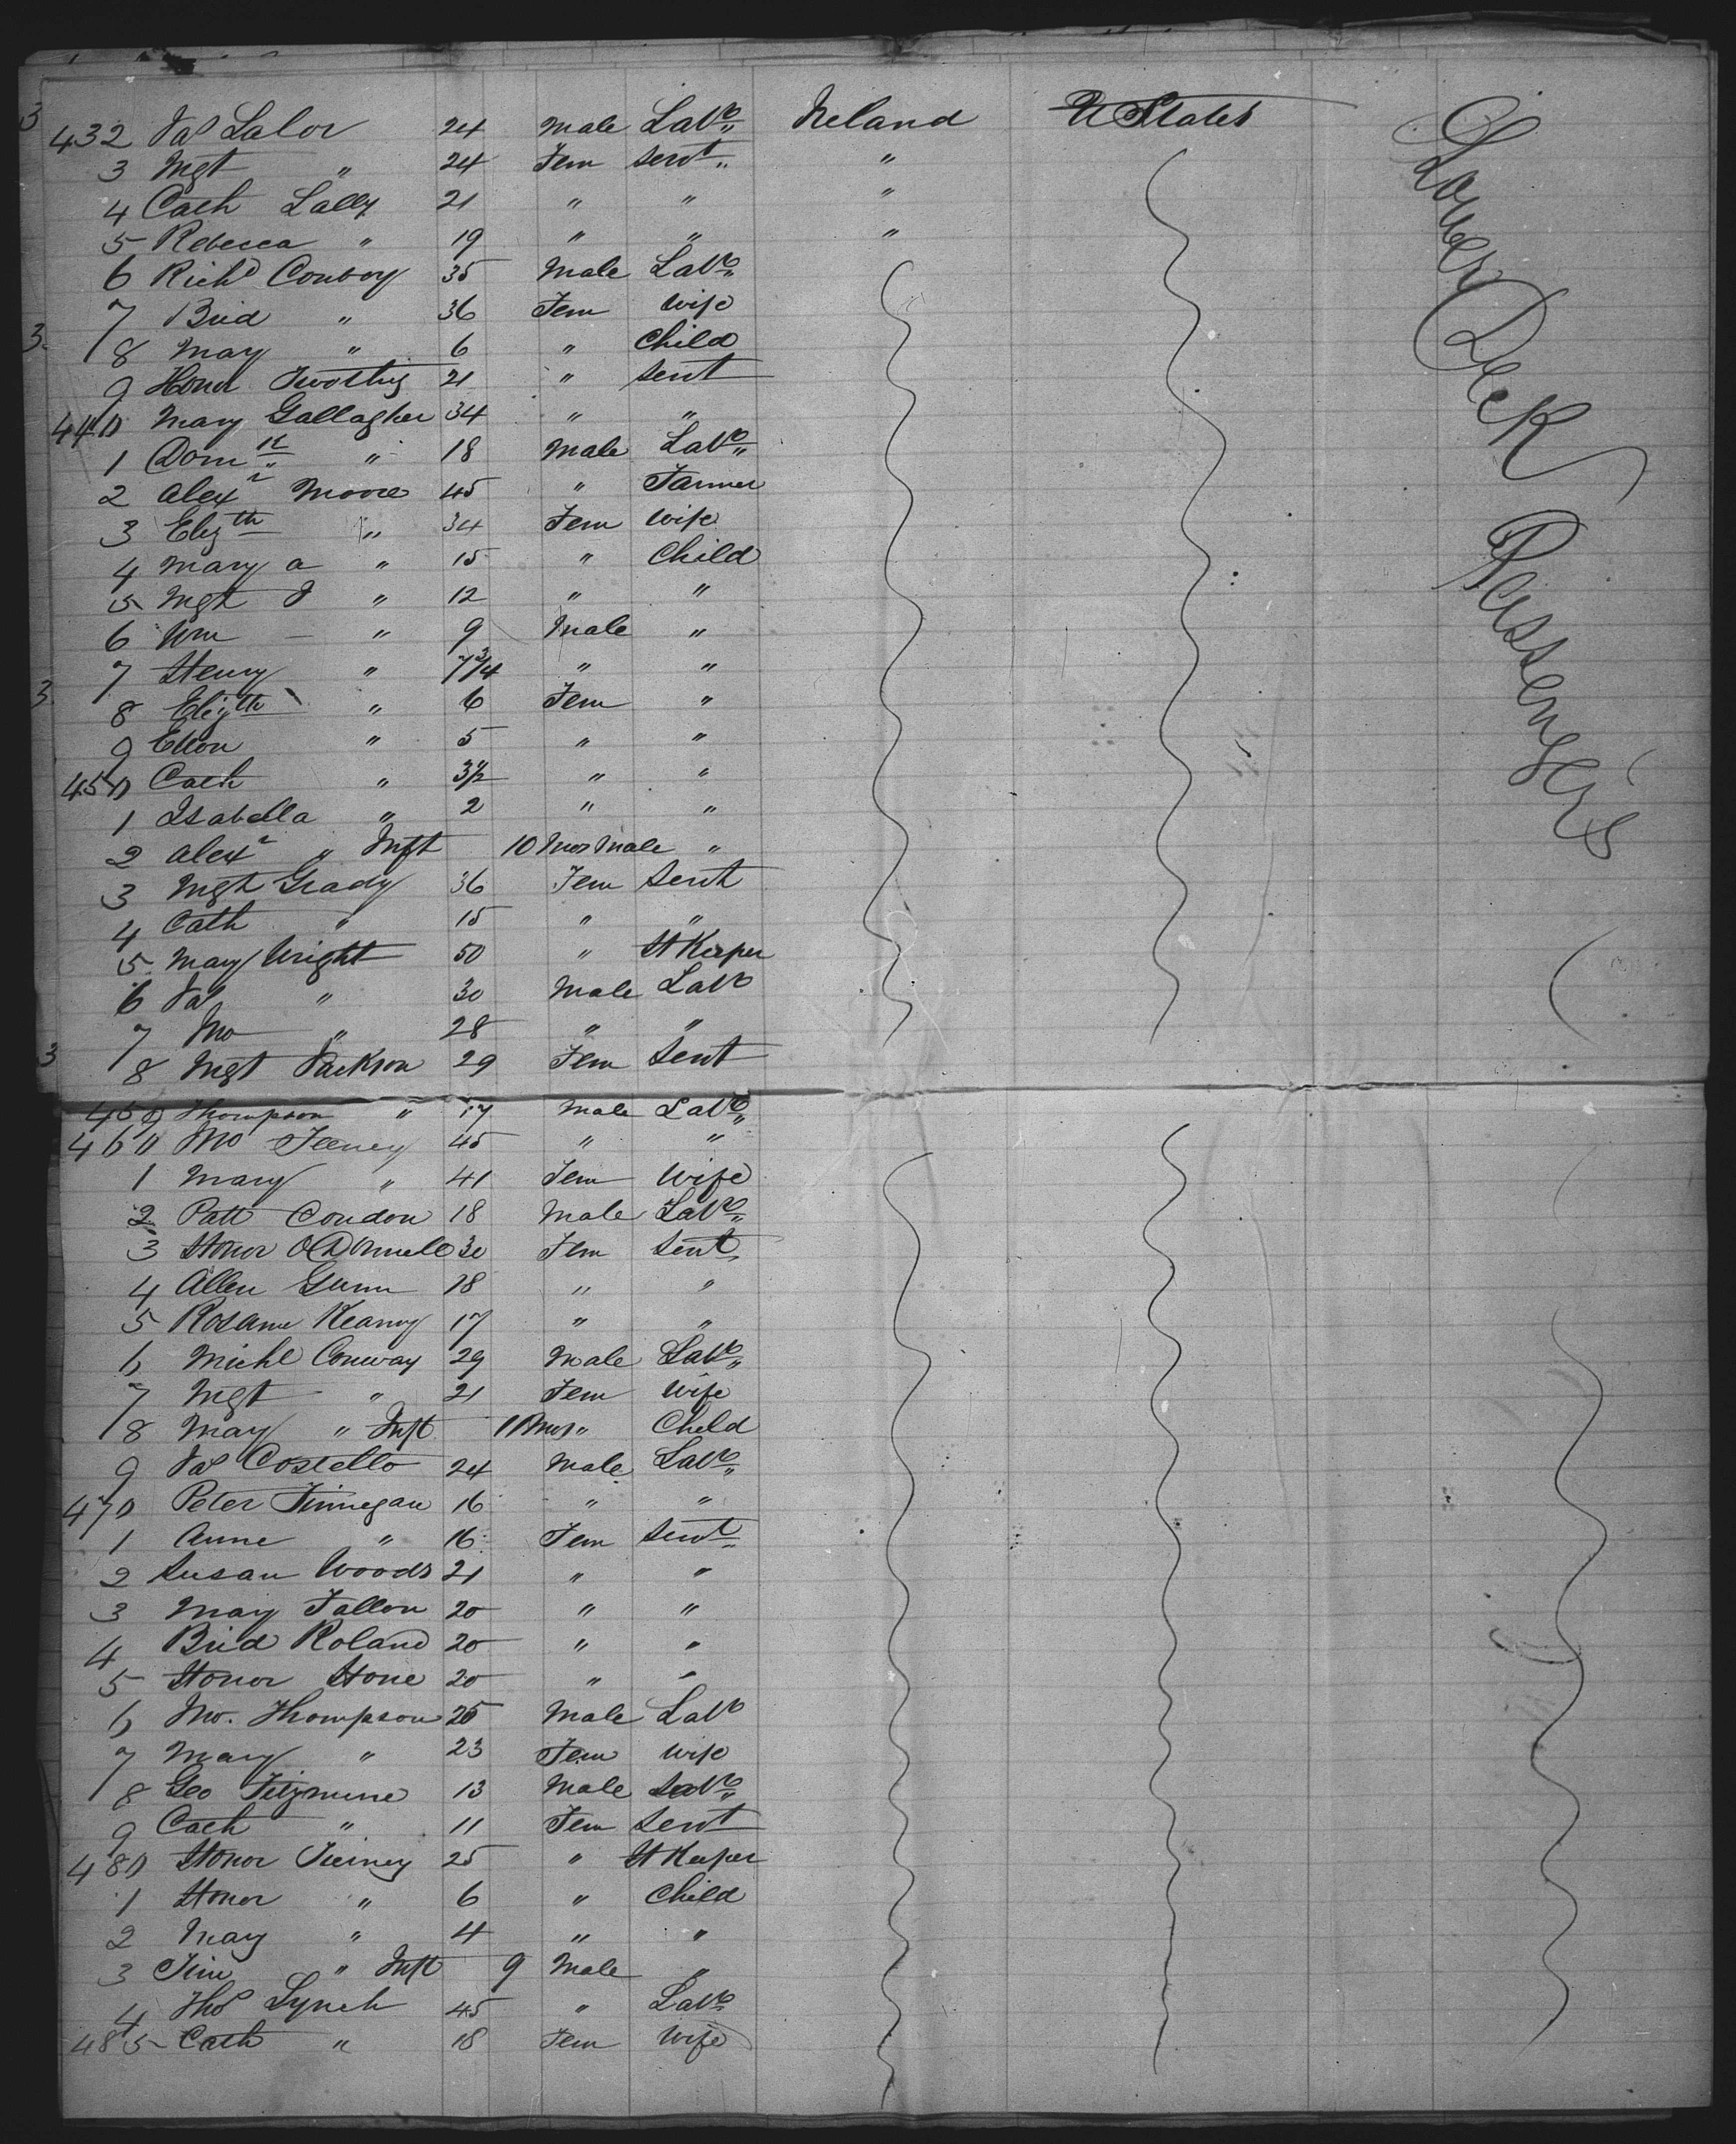 432 Jas Lalor 24 Male Labr Ireland U States
3 Mgt " 24 Fem Servt " 
4 Cath Lally 21 " " "
5 Rebecca " 19 " " "
6 Richd Conboy 35 Male Labr
7 Brid " 36 Fem Wife
8 Mary " 6 " Child
9 Honor 21 " Servt
440 Mary Gallagher 34 " "
1 Domk " 18 Male Labr
2 Alexr Moore 45 " Farmer
3 Elizth " 34 Fem Wife
4 Mary A " 15 " Child
5 Mgt J " 12 " "
6 Wm " 9 Male "
7 Henry " 7 3/4 " "
8 Elizth " 6 Fem "
9 Ellen " 5 " "
450 Cath " 3 1/2 " "
1 Isabella " 2 " "
2 Alexr " Inft 10 Mos Male "
3 Mgt Grady 36 Fem Servt
4 Cath " 15 " "
5 Mary Wright 50 " H Keeper
6 Jas " 30 Male Labr
7 Jno " 28 " "
8 Mgt Jackson 29 Fem Servt
459 Thompson " 17 Male Labr
460 Jno Feeney 45 " "
1 Mary " 41 Fem Wife
2 Patt Condon 18 Male Labr
3 Honor O'Donnell 30 Fem Servt
4 Allen Gunn 18 " "
5 Rosanne Kearny 17 " "
6 Michl Conway 29 Male Labr
7 Mgt " 21 Fem Wife
8 Mary " Inft 11 Mos " Child
9 Jas Costello 24 Male Labr
470 Peter Finnegan 16 " "
1 Anne " 16 Fem Servt
2 Susan Woods 21 " "
3 Mary Fallon 20 " "
4 Brid Roland 20 " "
5 Honor Hone 20 " "
6 Jno. Thompson 25 Male Labr
7 Mary " 23 Fem Wife
8 Geo 13 Male Labr
9 Cath " 11 Fem Servt
480 Honor Tierney 25 " H Keeper
1 Honor " 6 " Child
2 Mary " 4 " "
3 Jim " Inft 9 Male "
4 Thos Lynch 45 " Labr
485 Cath " 18 Fem Wife
Lower Deck Passengers